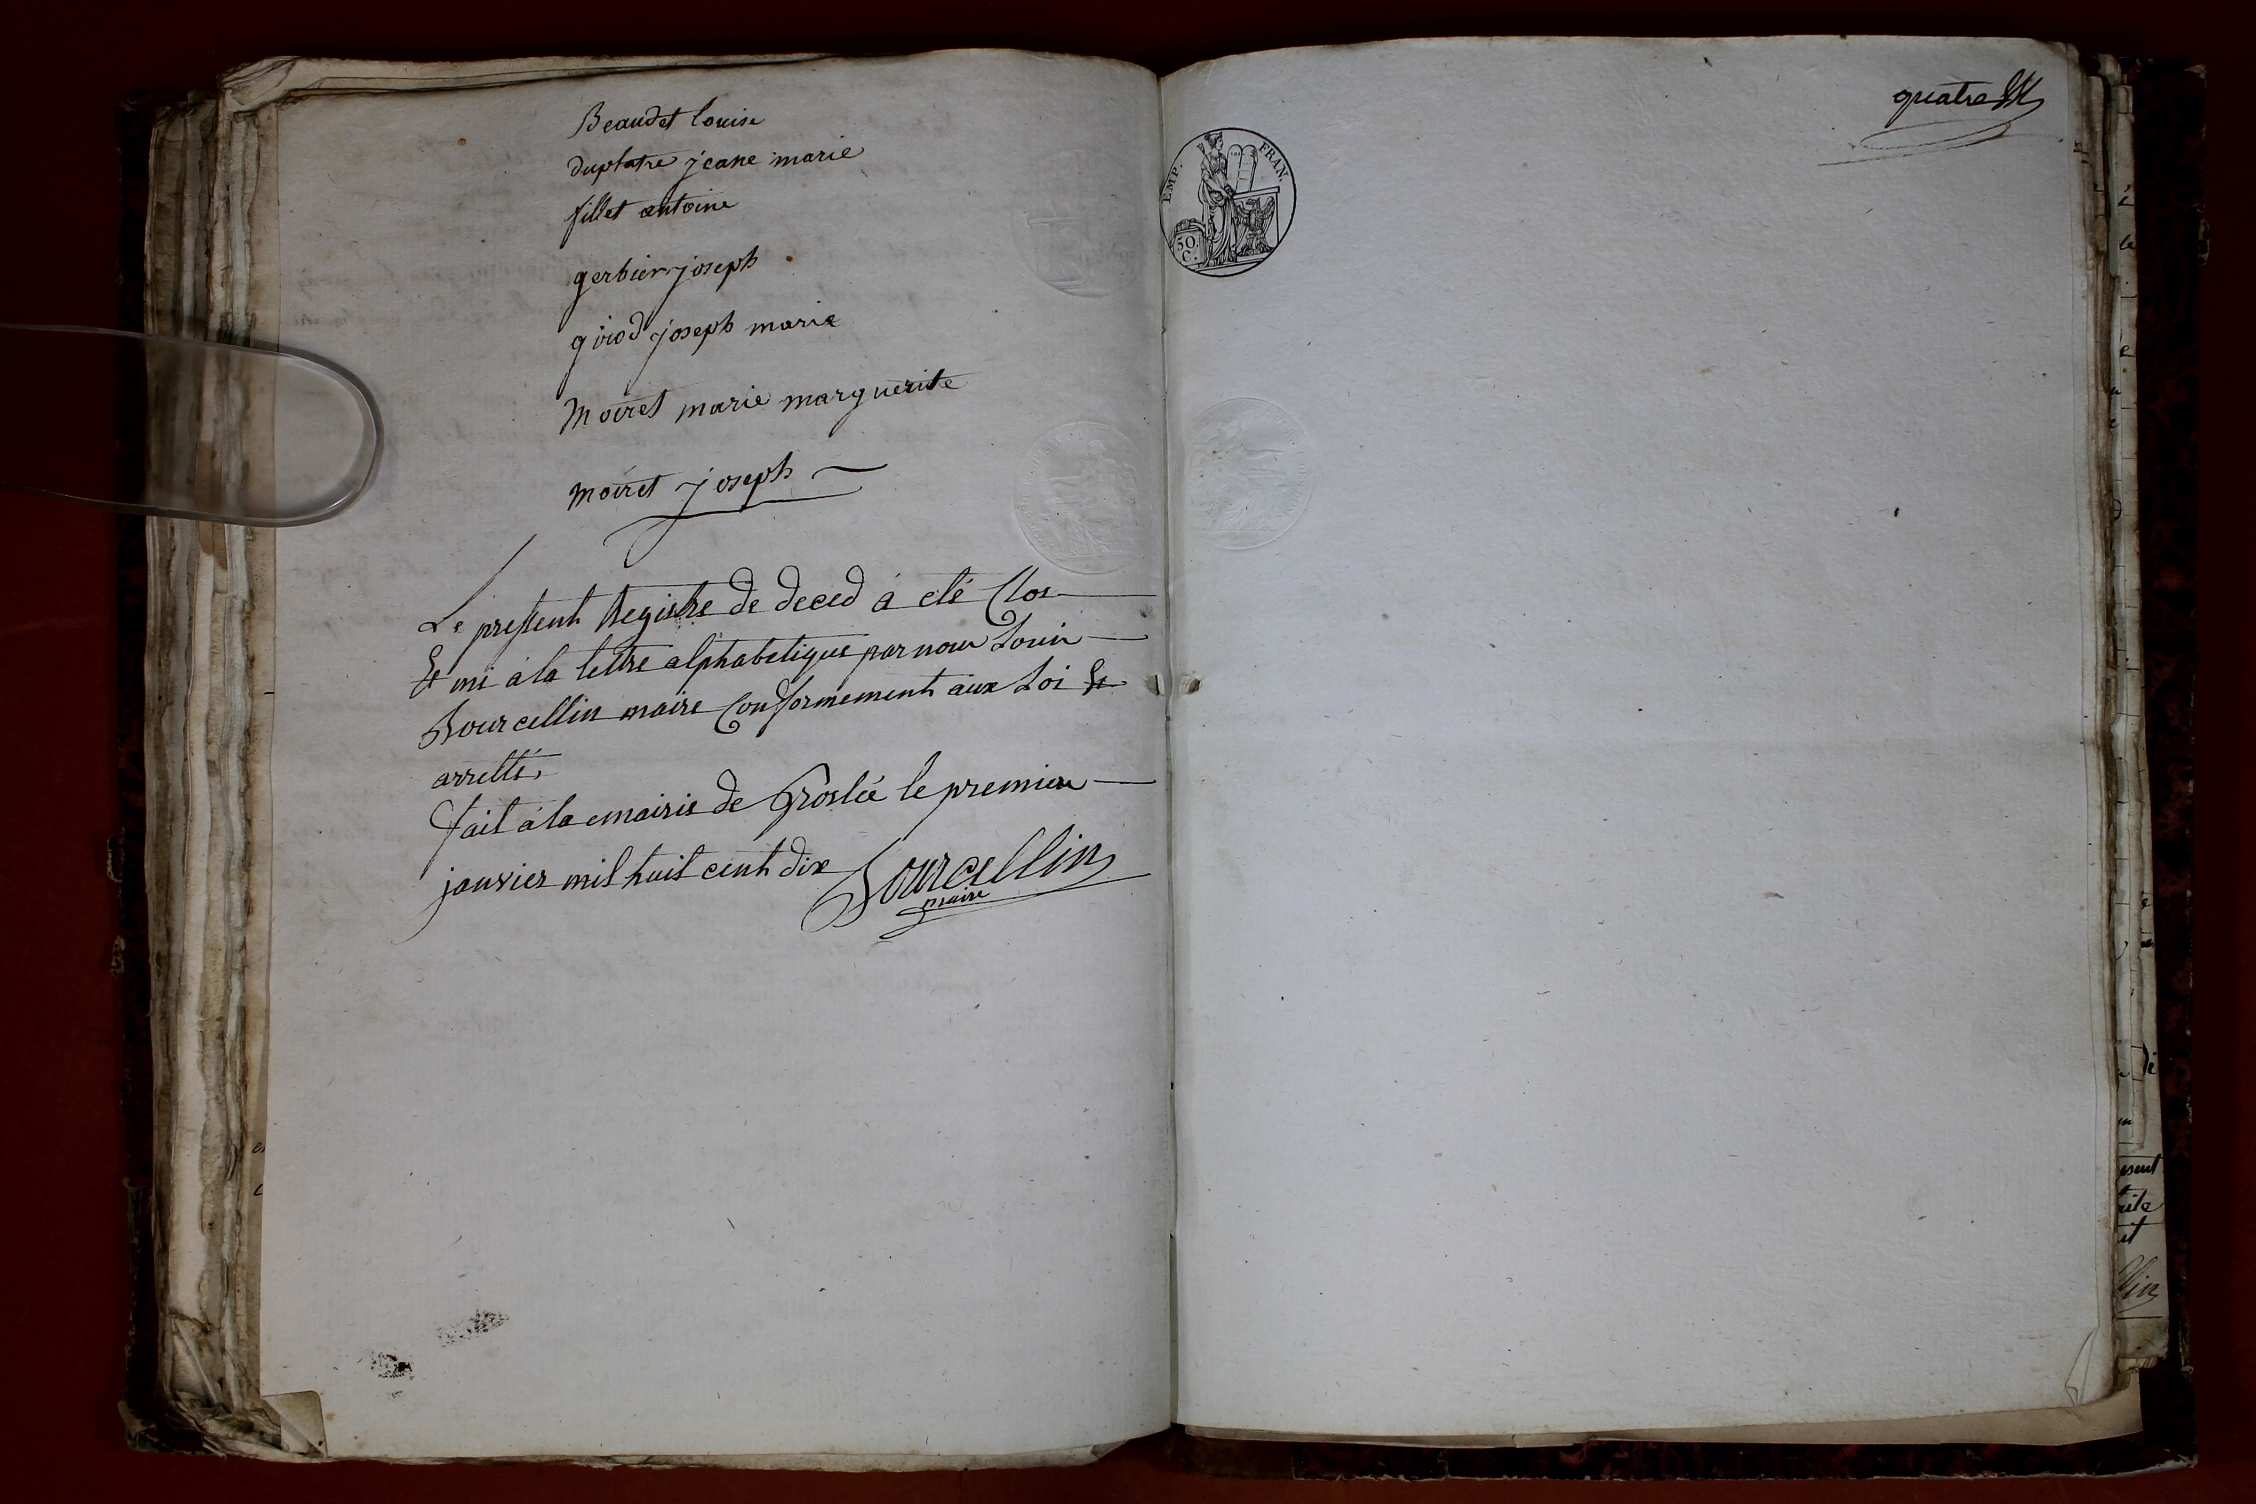 Beaudet louise
duplatre jeane marie
fillet antoine
gerbier joseph
girod joseph marie
Moiret marie marguerite
moiret joseph
Le present Registre de deced á eté Clos
Et mi á la lettre alphabetique par nous Louis
Bourcellin maire Conformement aux Loi Et
arretté,
fait á la mairie de Groslée le premier
janvier mil huit cent dix
Bourcellin
maire
quatre
EMP. FRAN.
50
C.